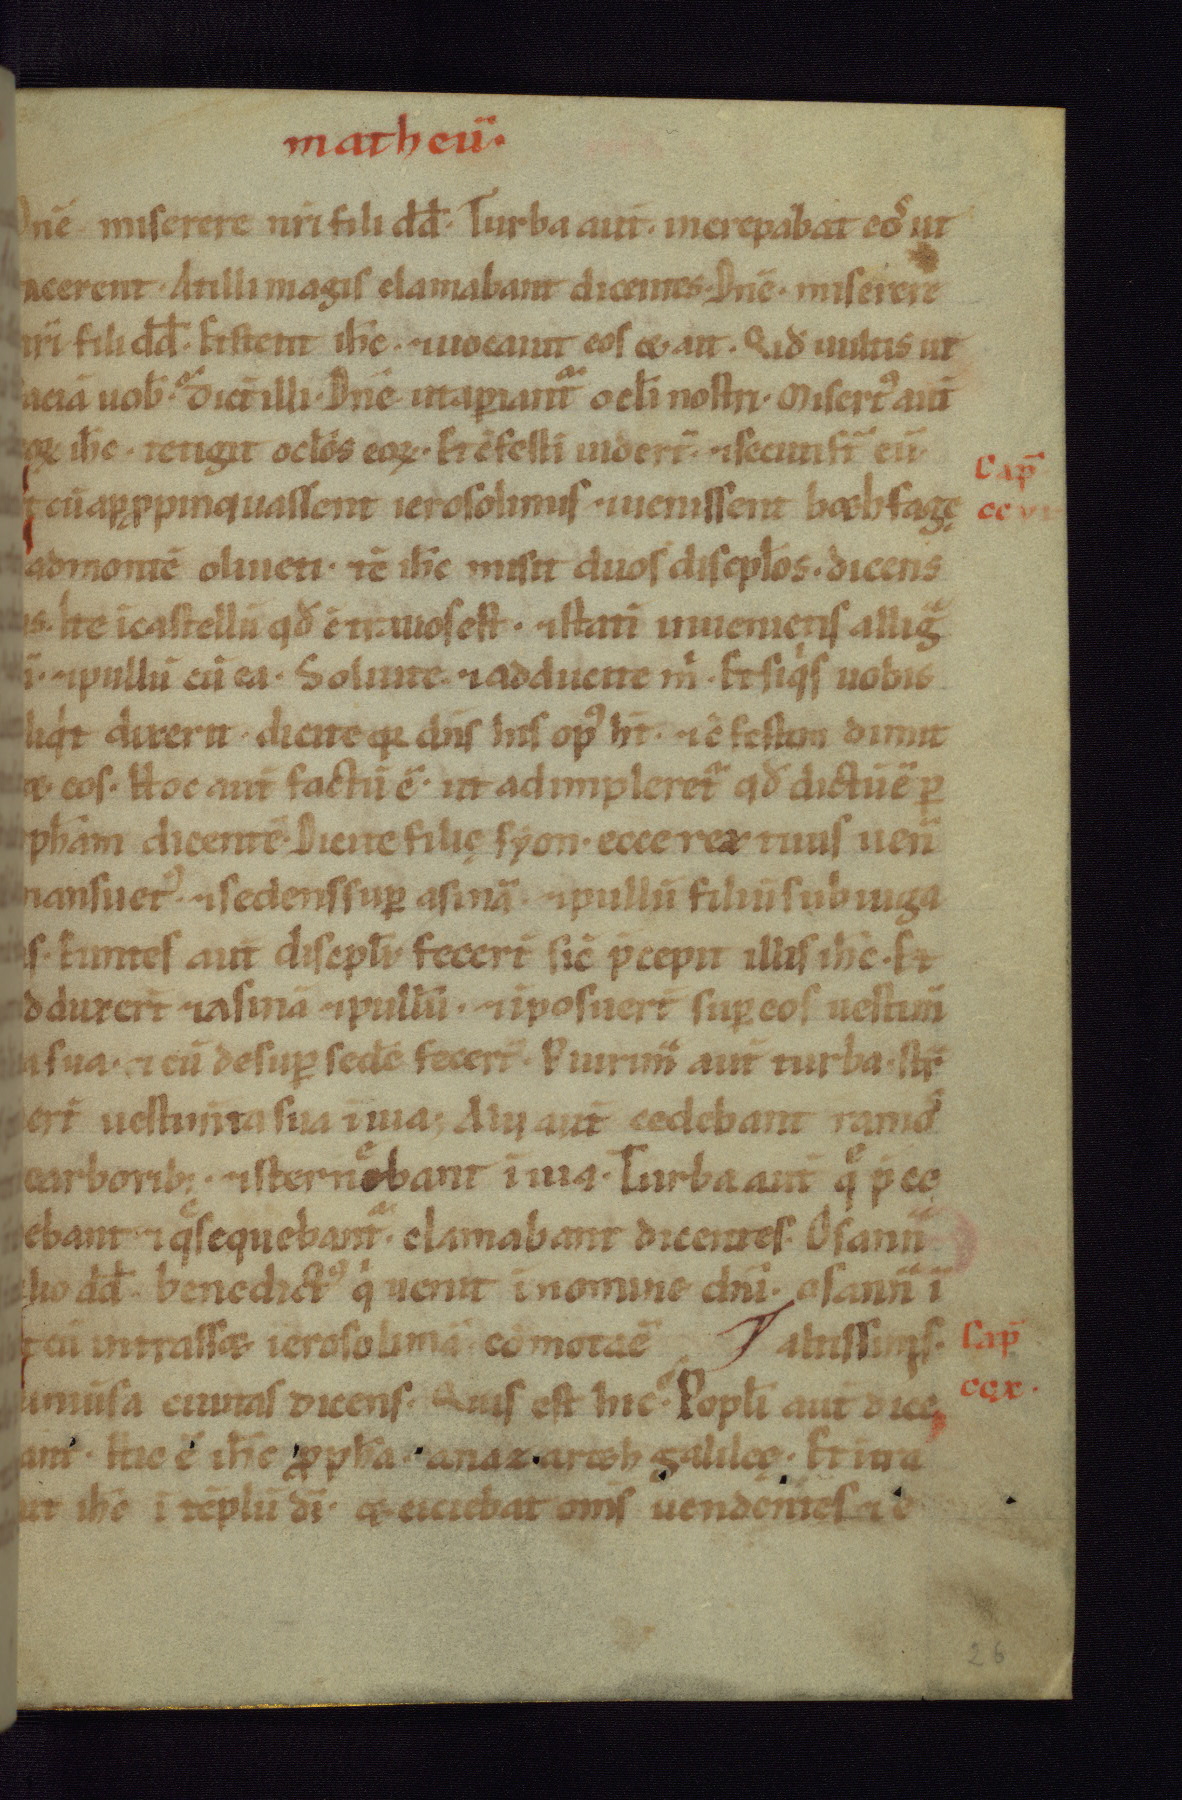 matheū·
Dn̄e miserere nr̄i fili dd̄· Turba aut̄· increpabat eos ut
tacerent· At illi magis clamabant dicentes· Dn̄e· miserere
nr̄i fili dd̄· Et stetit ih̄c· ⁊ uocauit eos & ait· Qid uultis ut
faciā uob̄· dic̄t illi· Dn̄e ut aꝑiant᷑ ocl̄i nostri· Misertꝰ aut̄
eoꝝ ih̄c· tetigit ocl̄os eoꝝ· Et cōfestī uider̄t· ⁊ secuti st̄ eū·
Cap̄
Et cū apꝓpinquassent ierosolimis ⁊ uenissent b&hfagę
ad montē oliueti· tc̄ ih̄c misit duos discipl̄os· dicens
eis· Ite ī castellū qd̄ cōtra uos est· ⁊ statī inuenietis alliḡ
ī· ⁊ pullū cū ea· Soluite· ⁊ adducite m̄· Et siq̇s uobis
aliq̇t dixerit· dicite qꝛ dn̄s his opꝰ ht̄· ⁊ cōfestim dimit
t& eos· Hoc aut̄ factū ē· ut adimpleret᷑ qd̄ dictū ē ꝑ
ꝓph̄am dicentē· Dicite filię syon· ecce rex tuus uen̄
mansuetꝰ· ⁊ sedens suꝑ asinā· ⁊ pullū filiū subiuga
lis· Euntes aut̄ discipl̄i fecer̄t sic̄ p̄cepit illis ih̄c· Et
adduxer̄t ⁊ asinā ⁊ pullū· ⁊ īposuer̄t suꝑ eos uestim̄
ta sua· ⁊ eū desuꝑ sede̅ fecer̄t· Plurim̄ aut̄ turba· str̄
uer̄t uestim̄ta sua ī uia; Alij aut̄ cedebant ramoˢ
de arborib; ⁊ sternebant ī uia· Turba aut̄ qͤ p̄ce
debant ⁊ qͤ sequebant᷑· clamabant dicentes· Osann̄
filio dd̄· benedictꝰ q̇ uenit ī nomine dn̄i· osann̄ ī
Et cū intrass& ierosolimā cōmota ē altissimis·
Cap̄
ccx·
uniuisa ciuitas dicens· Quis est hic· Popl̄i aut̄ dice
bant· Hic ē ih̄c ꝓph̄a· a nazar&h galileę· Et intra
uit ih̄c ī tēplū dī· & eiciebat oms̄ uendentes ⁊ e
26